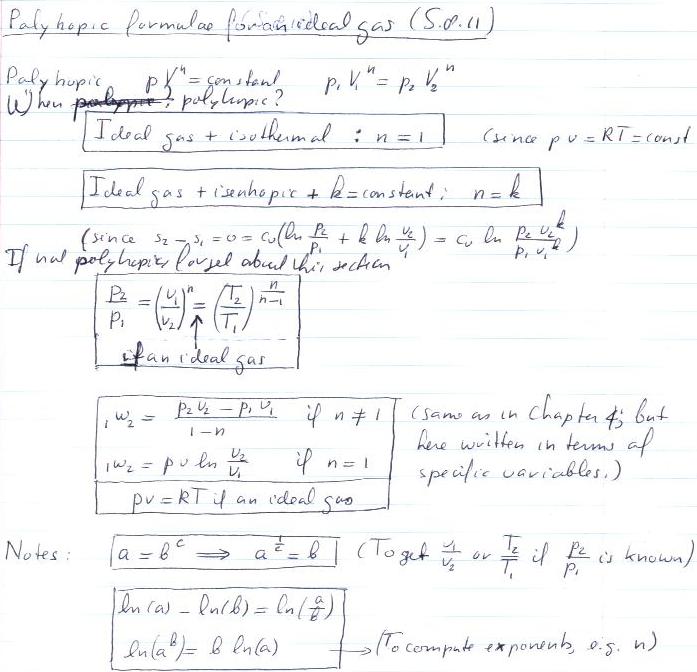 Polytropic formulae for an ideal gas (S.8.11)
Polytropic pVⁿ = constant p₁V₁ⁿ = p₂V₂ⁿ
When polytropic?
Ideal gas + isothermal : n = 1 (since pv = RT = const
Ideal gas + isentropic + k = constant: n = k
(since s₂ − s₁ = 0 = cᵥ(ln p₂/p₁ + k ln v₂/v₁) = cᵥ ln p₂v₂ᵏ/p₁v₁ᵏ)
If not polytropic, forget about this section
p₂/p₁ = (v₁/v₂)ⁿ = (T₂/T₁)^(n/(n−1))
if an ideal gas
₁w₂ = (p₂v₂ − p₁v₁)/(1−n) if n ≠ 1 (same as in Chapter 4; but
here written in terms of
₁w₂ = pv ln v₂/v₁ if n = 1 specific variables.)
pv = RT if an ideal gas
Notes: a = b^c ⟹ a^(1/c) = b (To get v₁/v₂ or T₂/T₁ if p₂/p₁ is known)
ln(a) − ln(b) = ln(a/b)
ln(a^b) = b ln(a) → (To compute exponents, e.g. n)